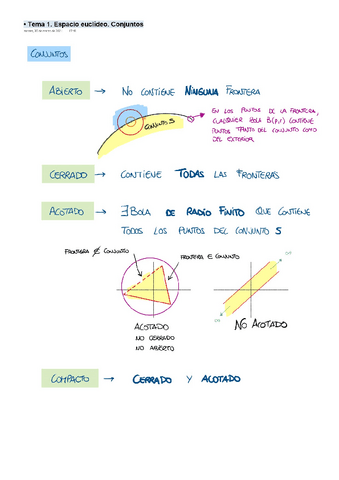 • Tema 1. Espacio euclídeo. Conjuntos
CONJUNTOS
ABIERTO → NO CONTIENE NINGUNA FRONTERA
CONJUNTO S
EN LOS PUNTOS DE LA FRONTERA,
CUALQUIER BOLA B(p,r) CONTIENE
PUNTOS TANTO DEL CONJUNTO COMO
DEL EXTERIOR
CERRADO → CONTIENE TODAS LAS FRONTERAS
ACOTADO → ∃ BOLA DE RADIO FINITO QUE CONTIENE
TODOS LOS PUNTOS DEL CONJUNTO S
FRONTERA ∉ CONJUNTO
FRONTERA ∈ CONJUNTO
ACOTADO
NO CERRADO
NO ABIERTO
NO ACOTADO
COMPACTO → CERRADO Y ACOTADO